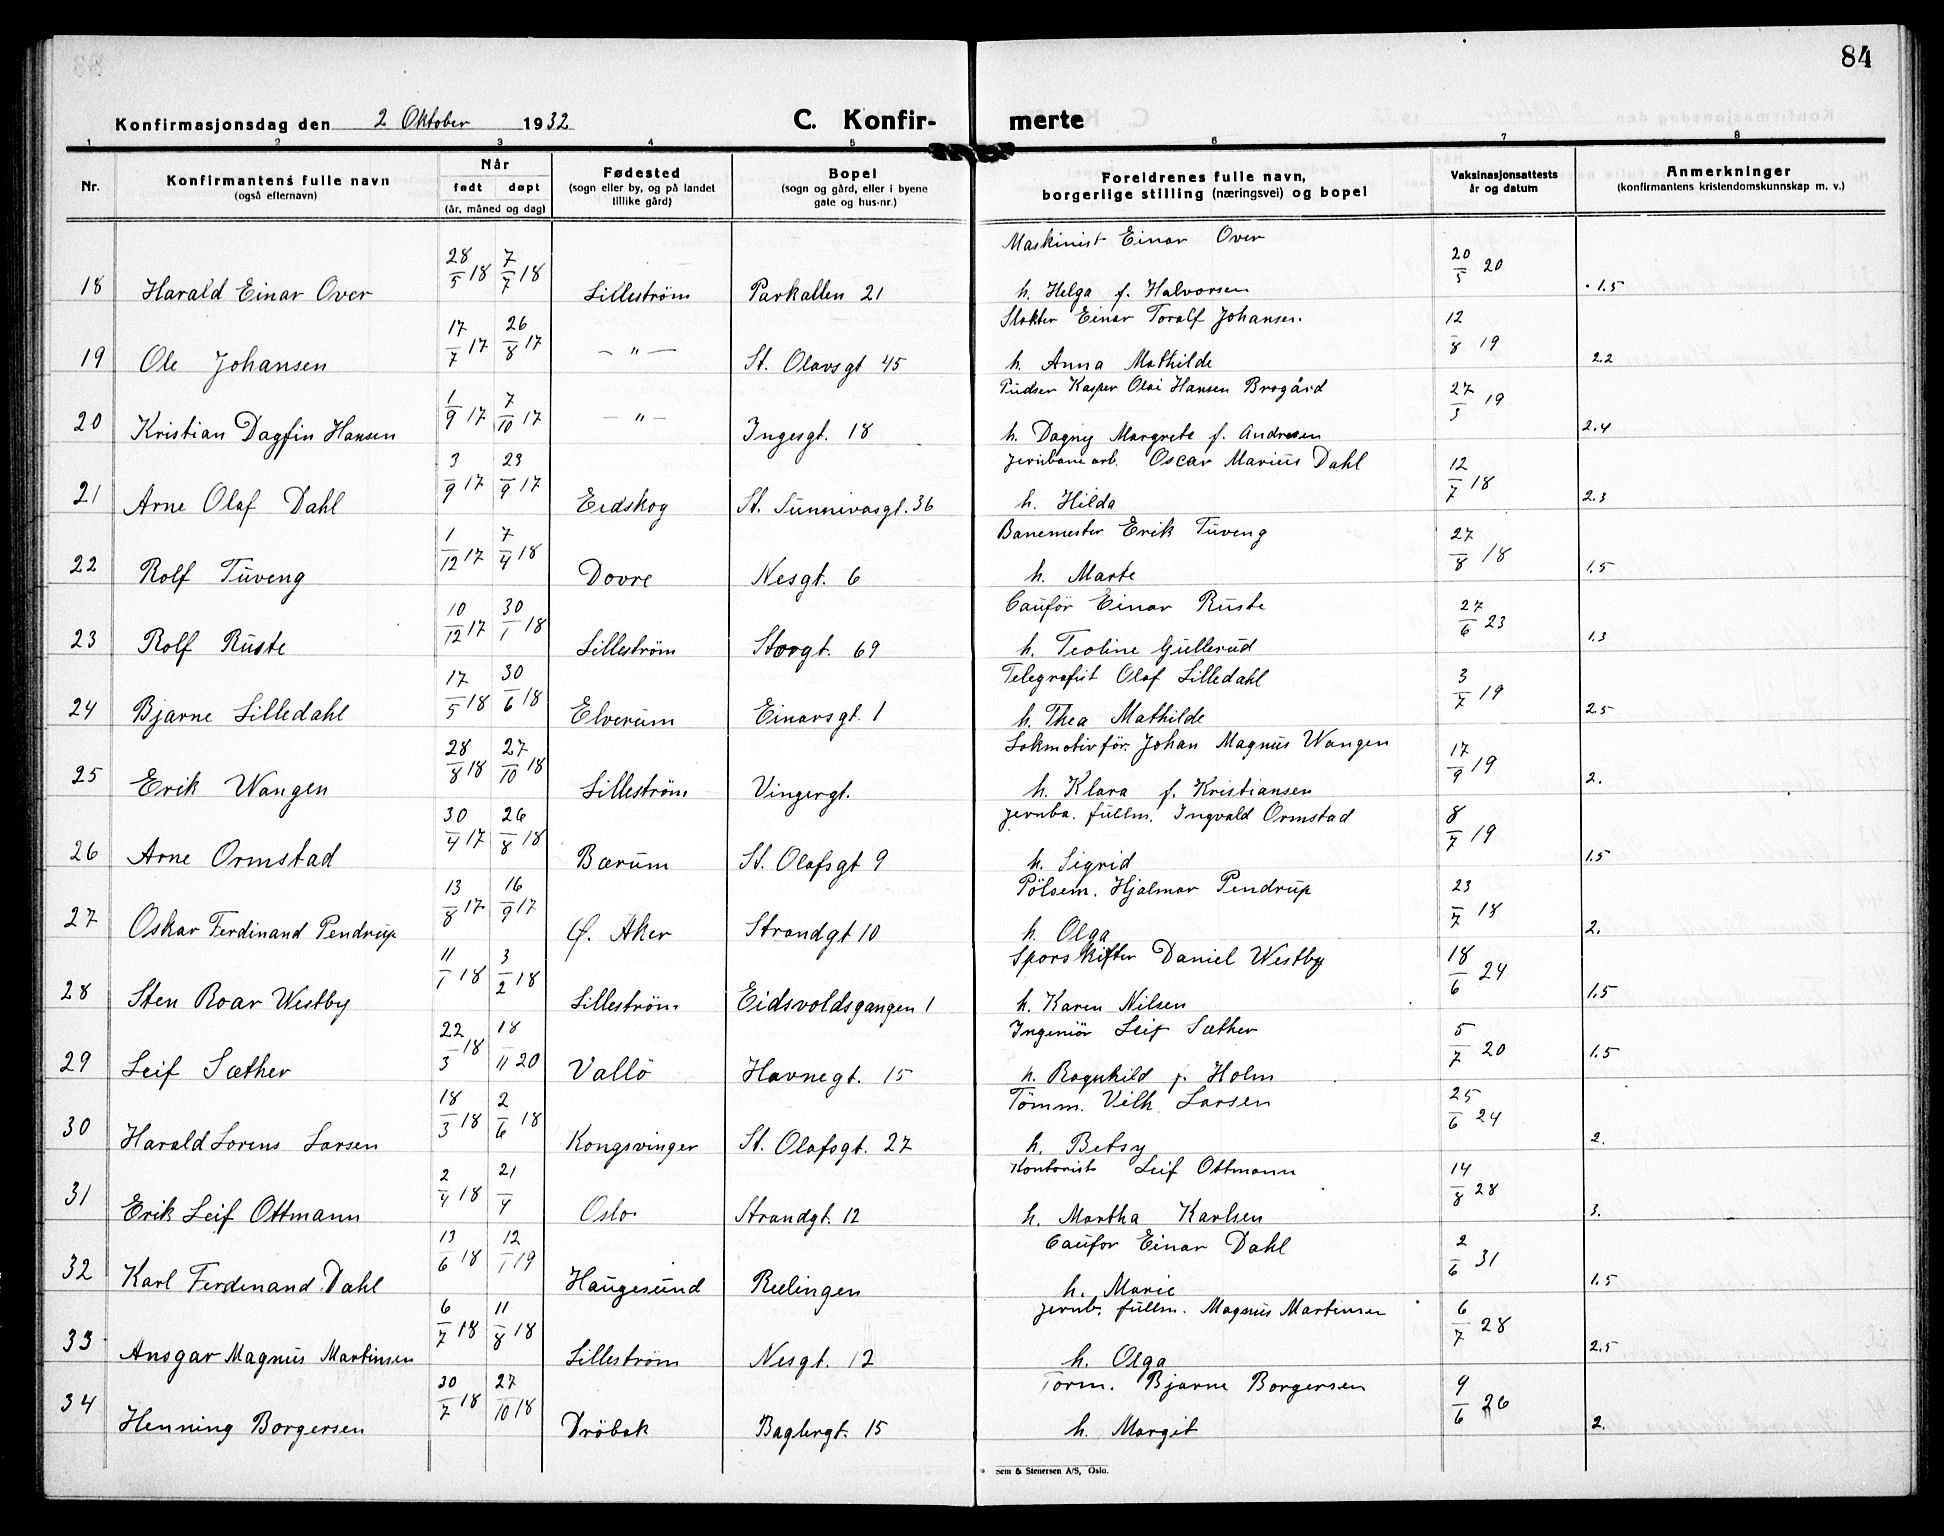 84
Konfirmasjonsdag den 2 Oktober 1932 C. Konfir- merte
1 2 3 4 5 6 7 8
Nr. Konfirmantens fulle navn (også efternavn) Når født døpt (år, måned og dag) Fødested (sogn eller by, og på landet tillike gård) Bopel (sogn og gård, eller i byene gate og hus-nr.) Foreldrenes fulle navn, borgerlige stilling (næringsvei) og bopel Vaksinasjonsattests år og datum Anmerkninger (konfirmantens kristendomskunnskap m. v.)
Maskinist Einar Over
18 Harald Einar Over 28/5 18 7/7 18 Lilleström Parkallen 21 h. Helga f. Halvorsen 20/5 20 1.5
Slakter Einar Toralf Johansen.
19 Ole Johansen 17/7 17 26/8 17 — " — St. Olavsgt 45 h. Anna Mathilde 12/8 19 2.2
Pudser Kasper Olai Hansen Brogård
20 Kristian Dagfin Hansen 1/9 17 7/10 17 — " — Ingesgt. 18 h. Dagny Margrete f. Andresen 27/3 19 2.4
Jernbane arb. Oscar Marius Dahl
21 Arne Olaf Dahl 3/9 17 23/9 17 Eidskog St. Sunnivasgt. 36 h. Hilda 12/7 18 2.3
Banemester Erik Tuveng
22 Rolf Tuveng 1/12 17 7/4 18 Dovre Nesgt. 6 h. Marte 27/8 18 1.5
Cauför Einar Ruste
23 Rolf Ruste 10/12 17 30/1 18 Lilleström Storgt. 69 h. Teoline Gullerud 27/6 23 1.3
Telegrafist Olaf Lilledahl
24 Bjarne Lilledahl 17/5 18 30/6 18 Elverum Einarsgt. 1 h. Thea Mathilde 3/7 19 2.5
Lokmotivför. Johan Magnus Wangen
25 Erik Wangen 28/8 18 27/10 18 Lilleström Vingergt. h. Klara f. Kristiansen 17/9 19 2.
Jernba. fullm. Ingvald Ormstad
26 Arne Ormstad 30/4 17 26/8 18 Bærum St. Olafsgt 9 h. Sigrid 8/7 19 1.5
Pölsem. Hjalmar Pendrup
27 Oskar Ferdinand Pendrup 13/8 17 16/9 17 Ø. Aker Strandgt 10 h. Olga 23/7 18 2.
Sporskifter Daniel Westby
28 Sten Roar Westby 11/1 18 3/2 18 Lilleström Eidsvoldsgangen 1 h. Karen Nilsen 18/6 24 1.5
Ingeniör Leif Sæther
29 Leif Sæther 22/3 18 18/11 20 Vallö Havnegt. 15 h. Ragnhild f. Holm 5/7 20 1.5
Tömm. Vilh. Larsen
30 Harald Lorens Larsen 18/3 18 2/6 18 Kongsvinger St. Olafsgt. 27 h. Betsy 25/6 24 2.
Kontorist Leif Ottmann
31 Erik Leif Ottmann 2/4 18 21/4 Oslo Strandgt. 12 h. Martha Karlsen 14/8 28 3.
Caufor Einar Dahl
32 Karl Ferdinand Dahl 13/6 18 12/1 19 Haugesund Rælingen h. Marie 2/6 31 1.5
Jernb. fullm. Magnus Martinsen
33 Ansgar Magnus Martinsen 6/7 18 11/8 18 Lilleström Nesgt. 12 h. Olga 6/7 28 2.5
Form. Bjarne Borgersen
34 Henning Borgersen 30/7 18 27/10 18 Dröbak Baglergt. 15 h. Margit 9/6 26 2.
Sem & Stenersen A/S, Oslo.